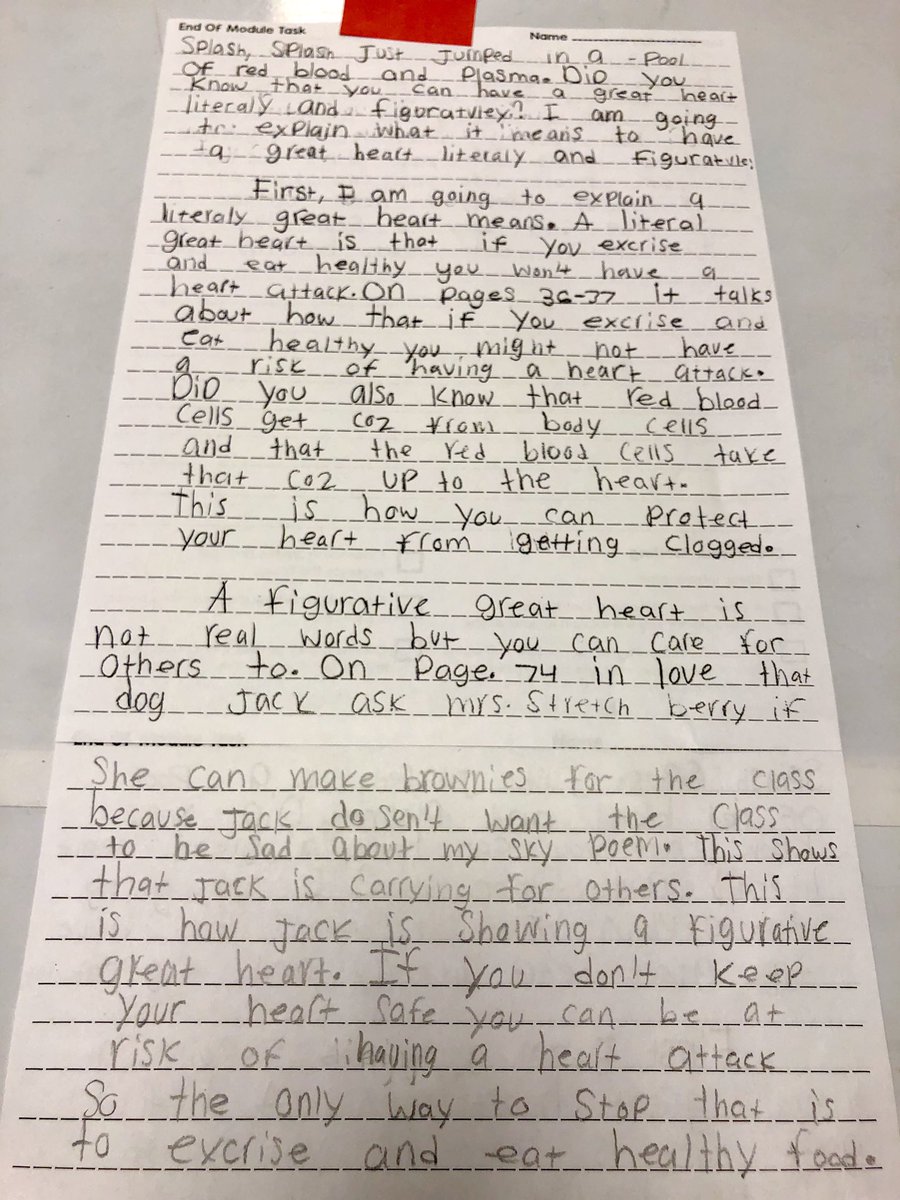 End Of Module Task Name
Splash, Splash Just Jumped in a - Pool
Of red blood and Plasma. Did you
Know that you can have a great heart
literaly and figuratvley? I am going
to explain what it means to have
a great heart literaly and figurativle
First, I am going to explain a
literaly great heart means. A literal
great heart is that if you excrise
and eat healthy you won4 have a
heart attack. On Pages 36-37 it talks
about how that if you excrise and
eat healthy you might not have
a risk of having a heart attack.
Did you also know that red blood
cells get co2 from body cells
and that the red blood cells take
that co2 up to the heart.
This is how you can Protect
your heart from getting clogged.
A figurative great heart is
not real words but you can care for
others to. On Page. 74 in love that
dog Jack ask mrs. Stretch berry if
She can make brownies for the class
because Jack dosen4 want the Class
to be sad about my sky Poem. This shows
that Jack is carrying for others. This
is how Jack is Showing a figurative
great heart. If you don't keep
your heart safe you can be at
risk of having a heart attack
So the only way to Stop that is
to excrise and eat healthy food.